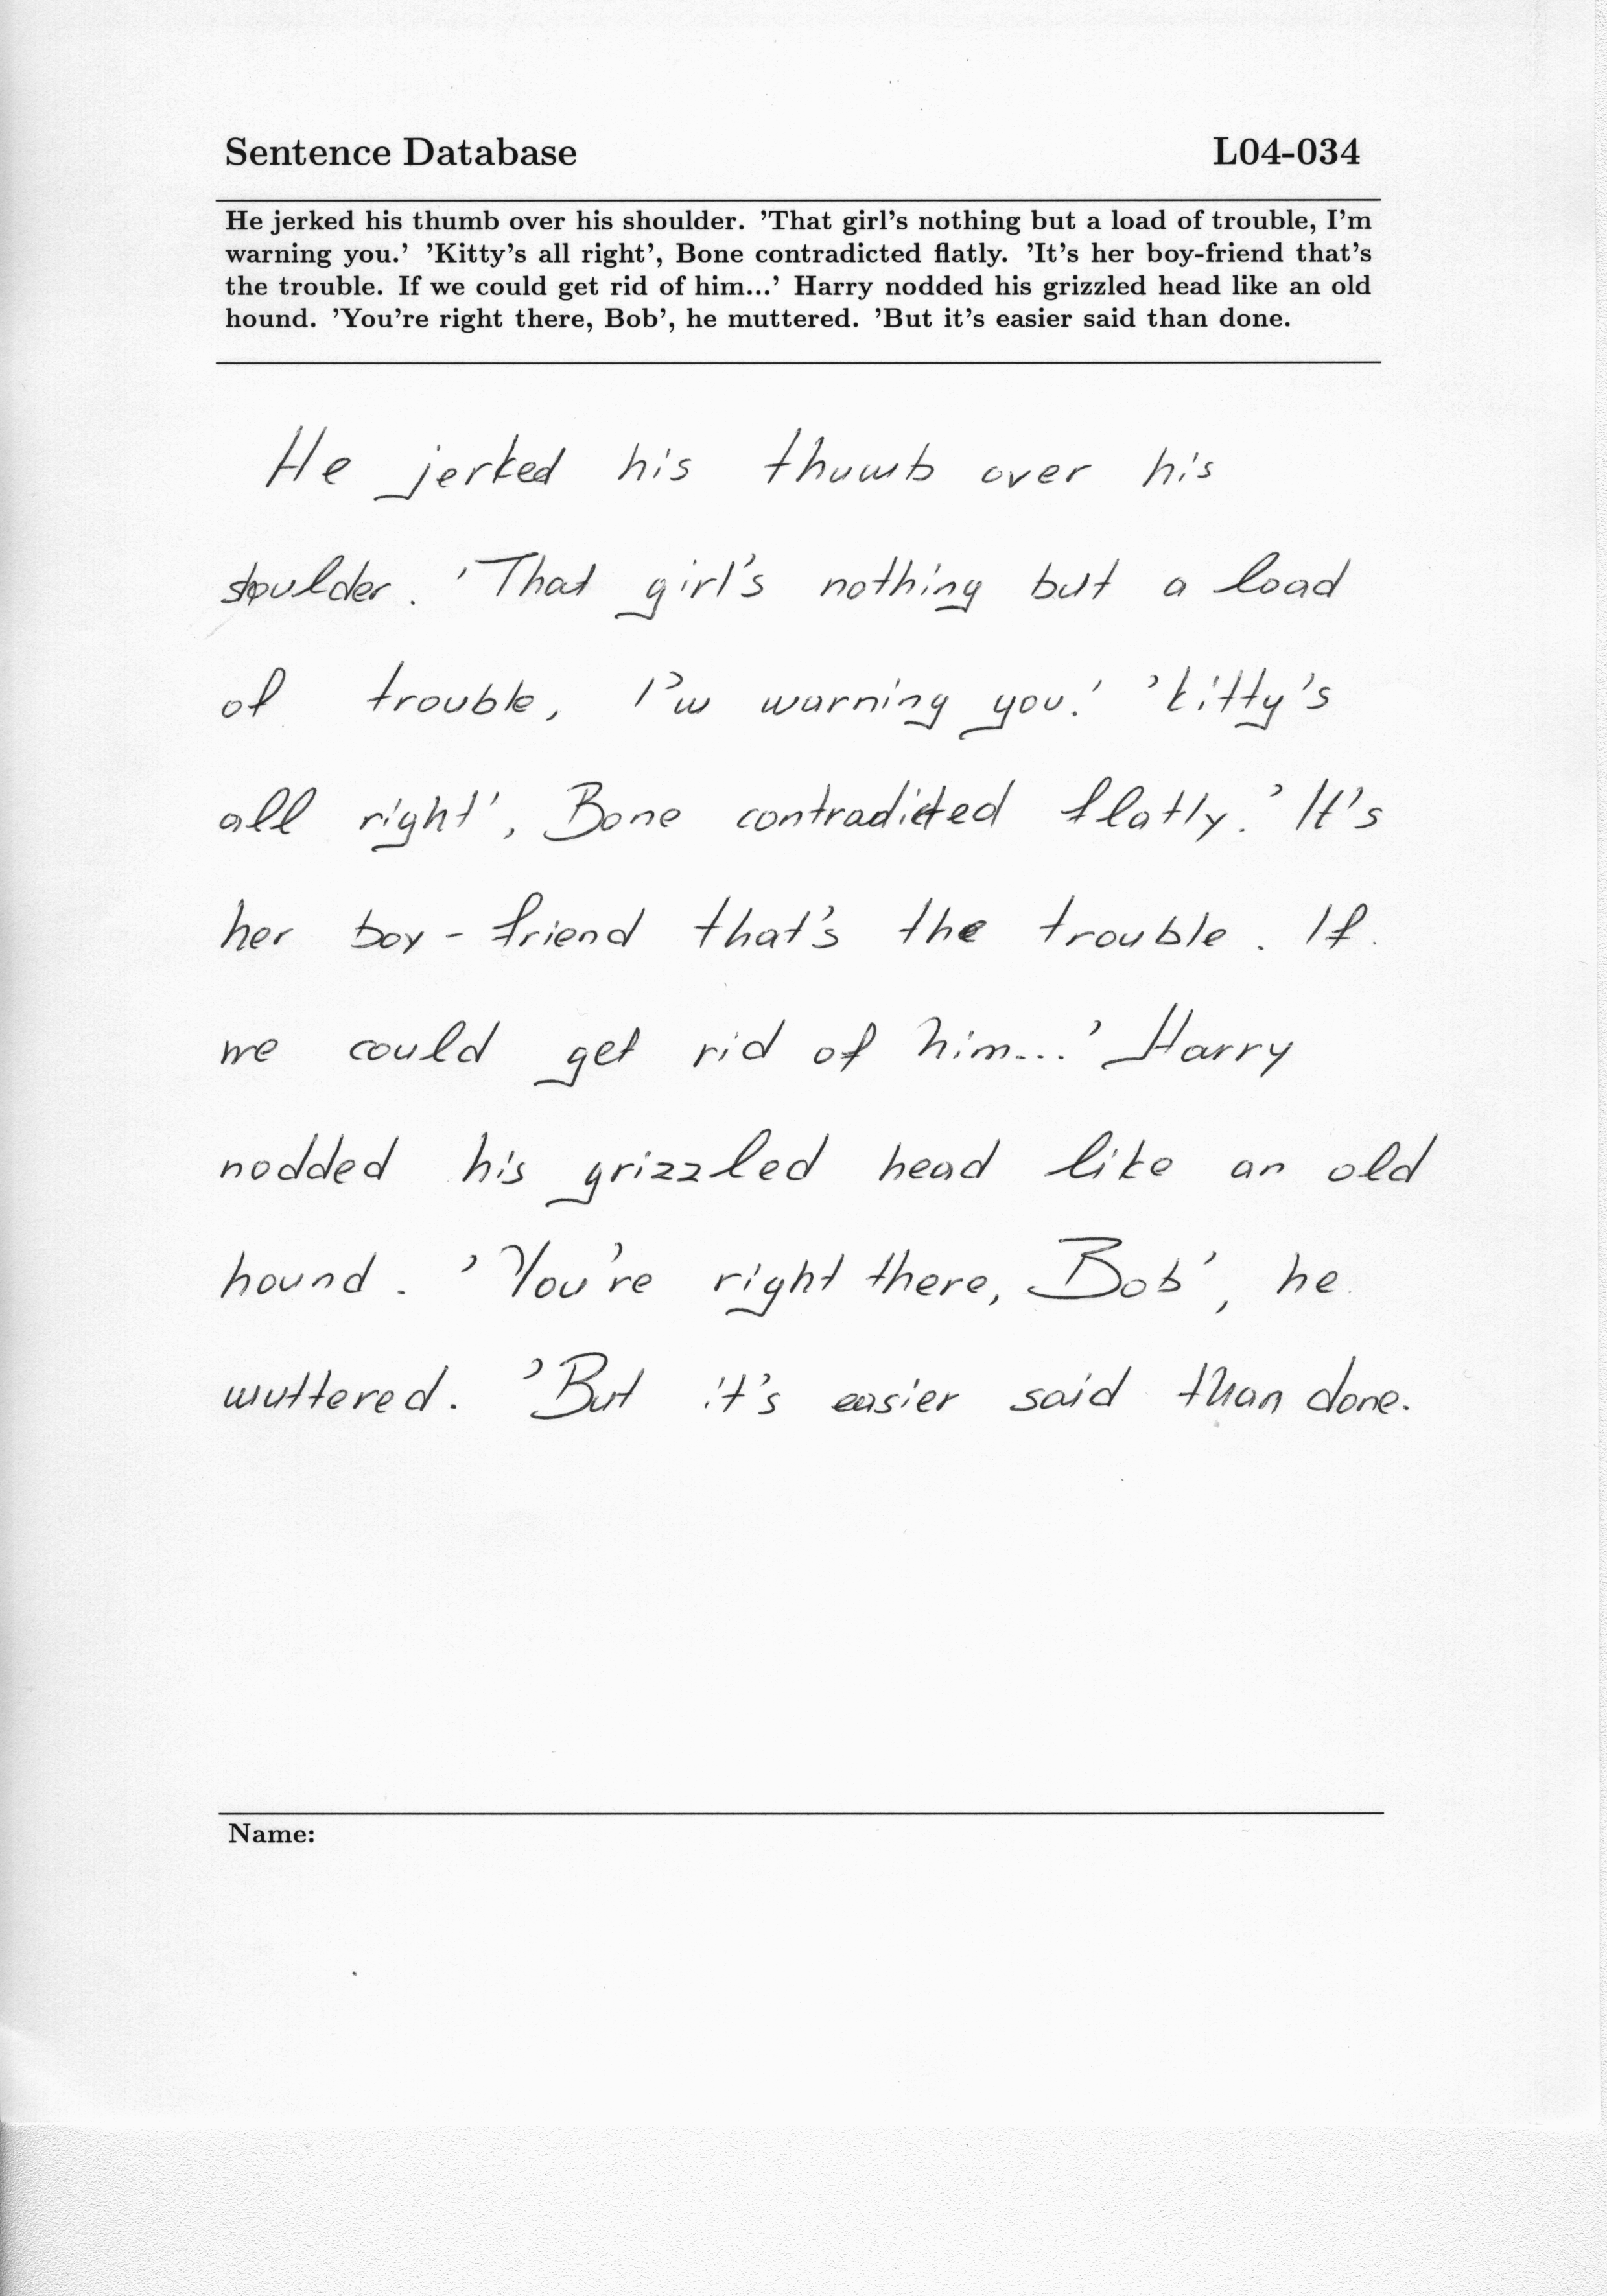 Sentence Database L04-034
He jerked his thumb over his shoulder. ’That girl’s nothing but a load of trouble, I’m
warning you.’ ’Kitty’s all right’, Bone contradicted flatly. ’It’s her boy-friend that’s
the trouble. If we could get rid of him...’ Harry nodded his grizzled head like an old
hound. ’You’re right there, Bob’, he muttered. ’But it’s easier said than done.
He jerked his thumb over his
shoulder. 'That girl's nothing but a load
of trouble, I'm warning you.' 'Kitty's
all right', Bone contradicted flatly. 'It's
her boy-friend that's the trouble. If
we could get rid of him...' Harry
nodded his grizzled head like an old
hound. 'You're right there, Bob', he
muttered. 'But it's easier said than done.
Name: